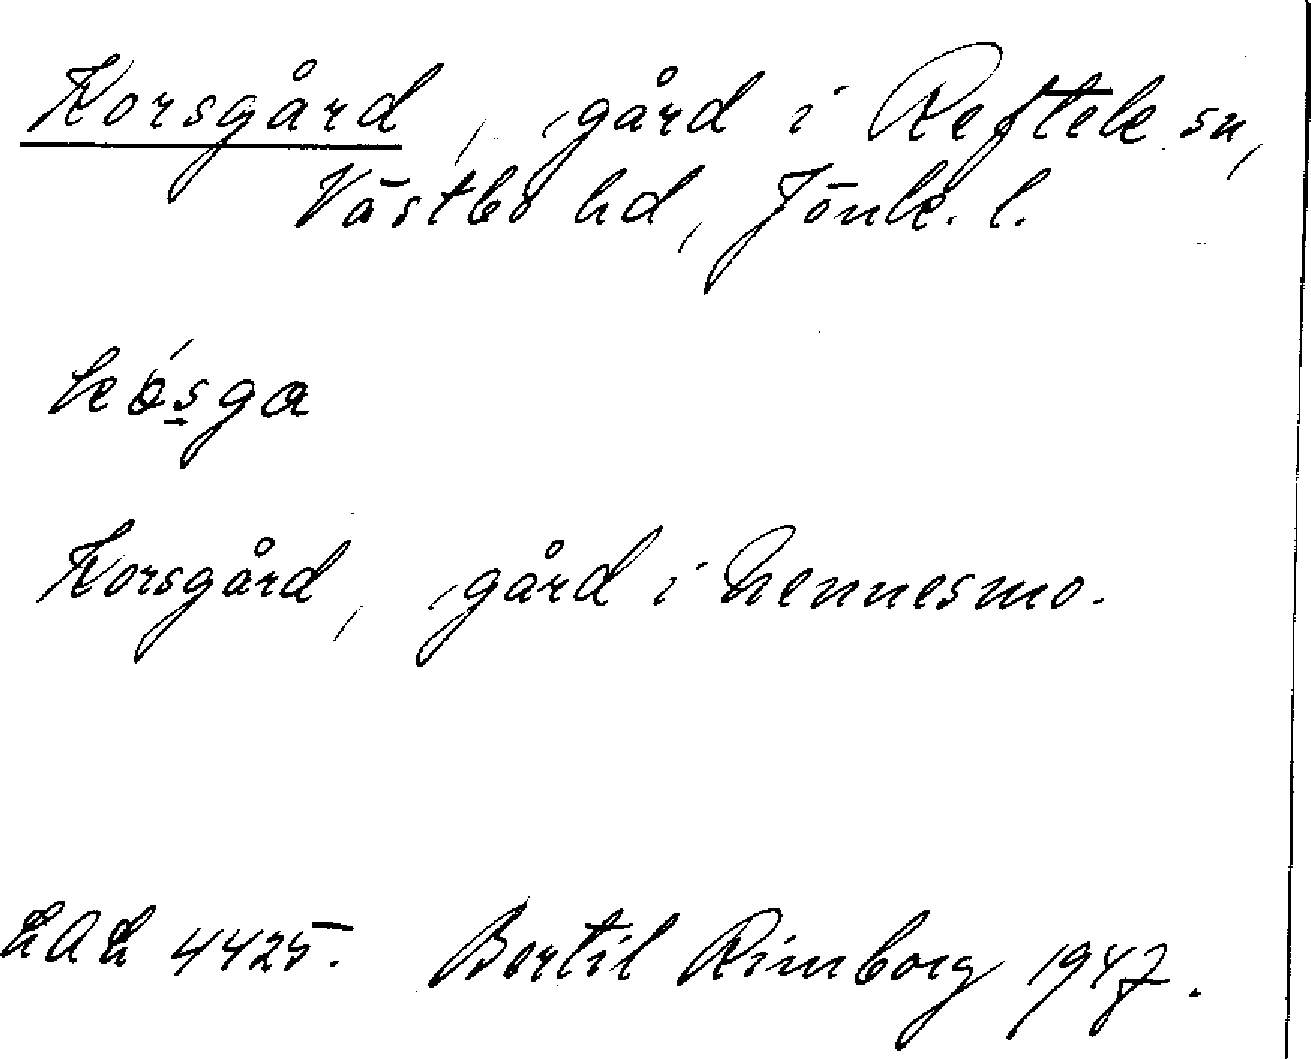 Korsgård, gård i Reftele sn,
Västbo hd, Jönk. l.
kósga
Korsgård, gård i Nennesmo.
LAL 4425. Bertil Rimborg 1947.